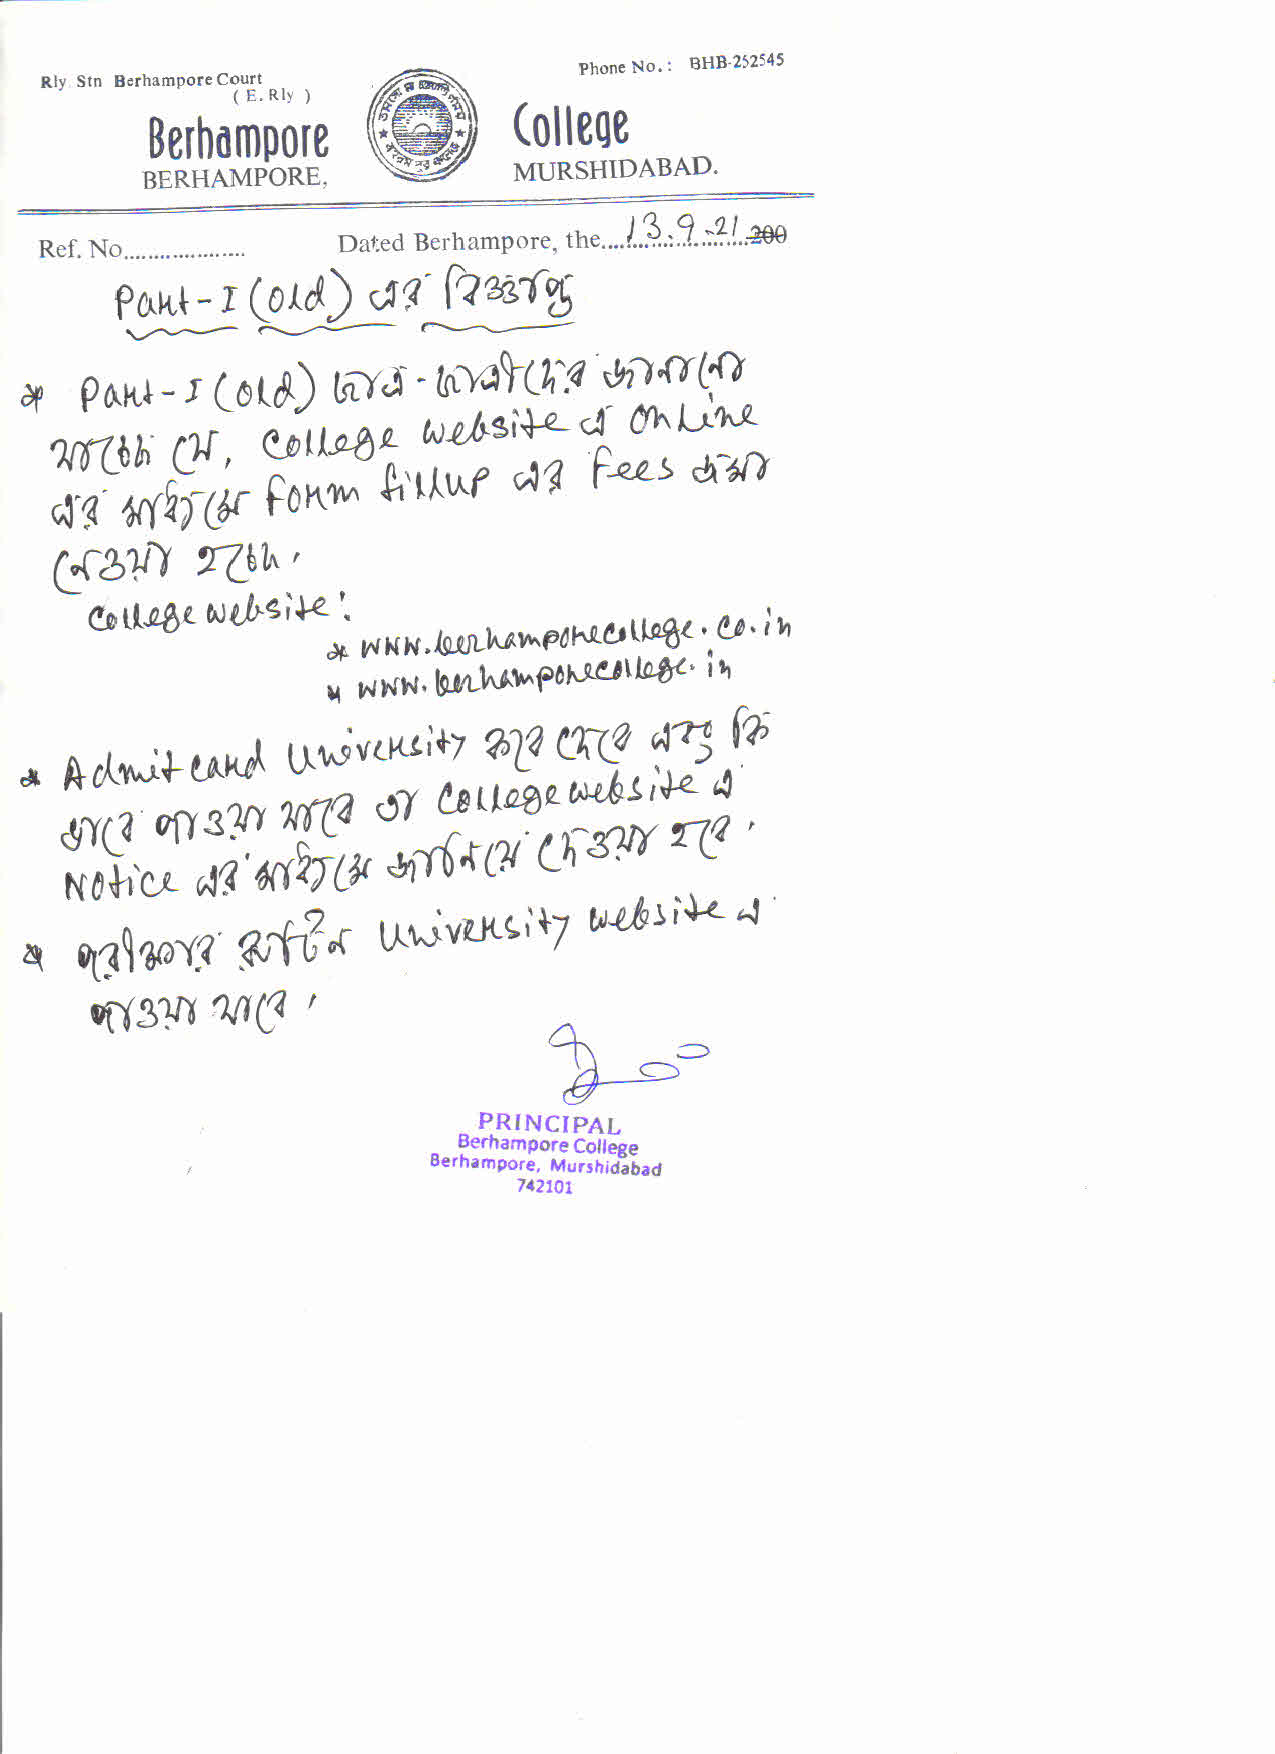 Rly Stn Berhampore Court
( E. Rly )
Phone No. : BHB-252545
Berhampore College
BERHAMPORE, MURSHIDABAD.
Ref. No....................
Dated Berhampore, the....13.9.21.200
Part-I (old) এর বিজ্ঞপ্তি
* Part-I (old) ছাত্র-ছাত্রীদের জানানো
যাচ্ছে যে, College website এ online
এর মাধ্যমে Form fillup এর Fees জমা
নেওয়া হচ্ছে।
College website:
* www.berhamporecollege.co.in
* www.berhamporecollege.in
* Admit card University কবে দেবে এবং কি
ভাবে পাওয়া যাবে তা College website এ
Notice এর মাধ্যমে জানিয়ে দেওয়া হবে।
* পরীক্ষার রুটিন University website এ
পাওয়া যাবে।
PRINCIPAL
Berhampore College
Berhampore, Murshidabad
742101